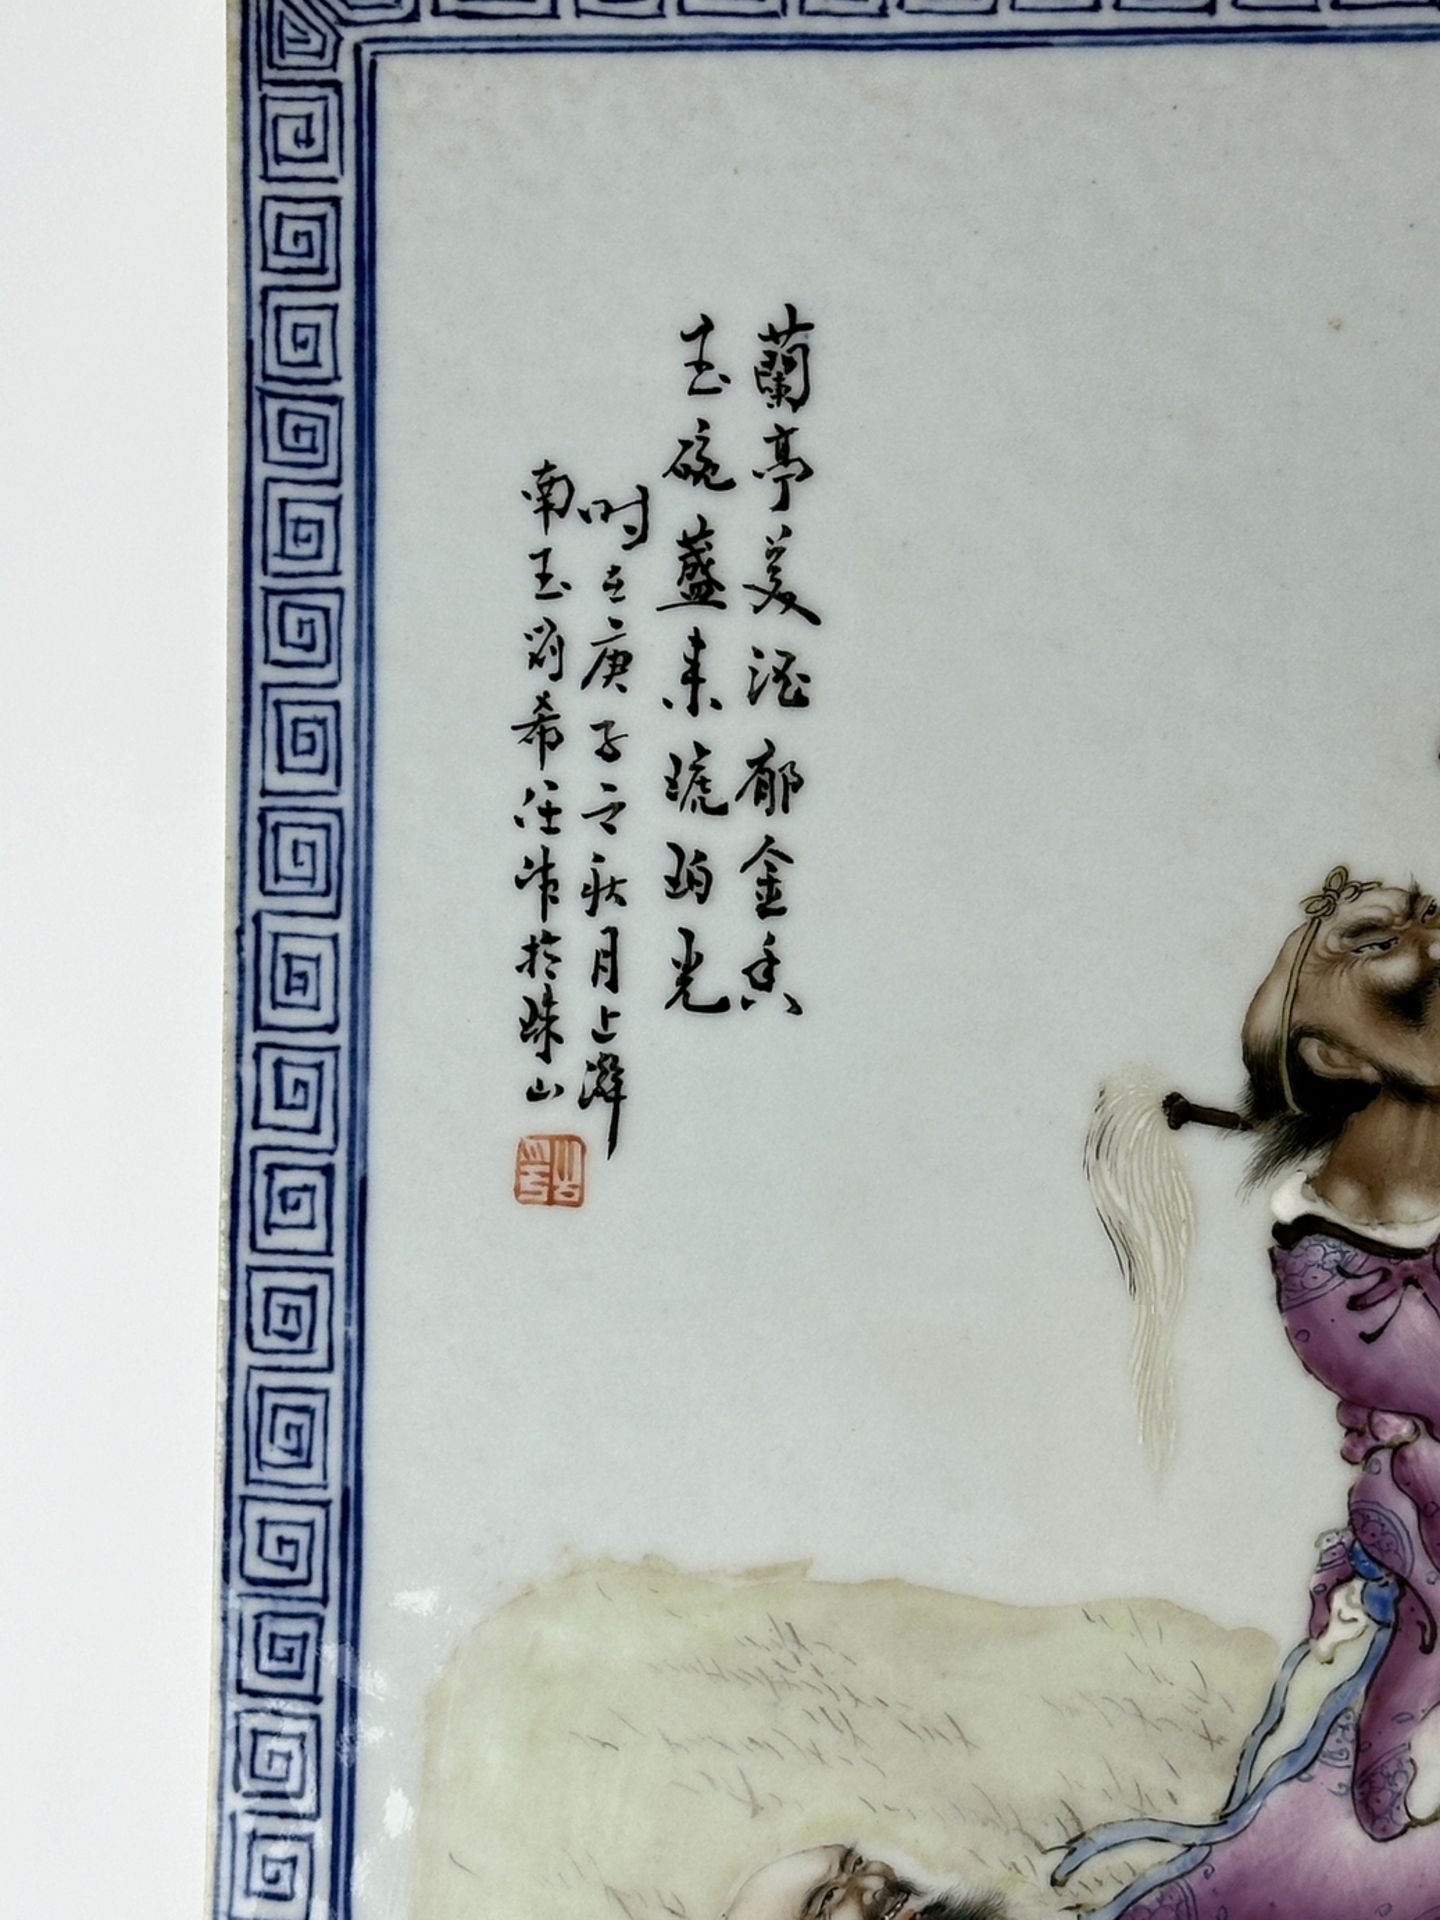 蘭亭美酒郁金香
玉碗盛来琥珀光
时在庚子之秋月上澣
南玉劉希任作於珠山